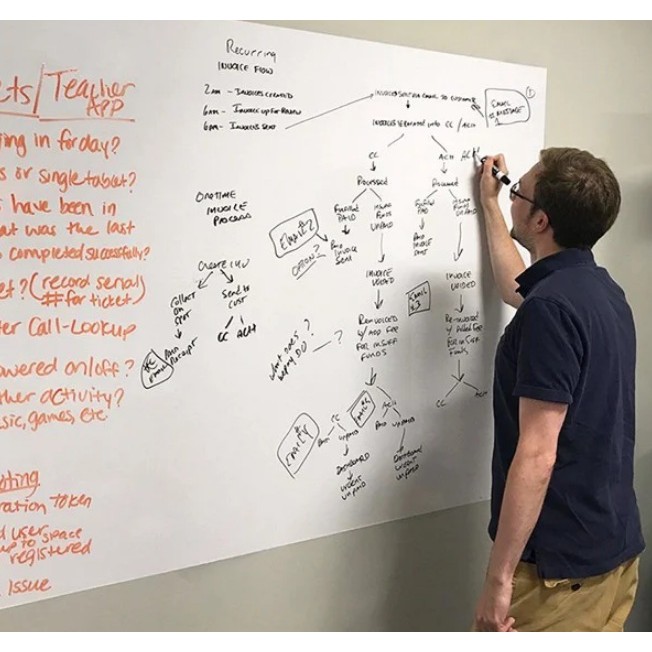 ets/Teacher
APP
ing in for day?
s or single tablet?
s have been in
at was the last
completed successfully?
et? (record serial
# for ticket)
er Call-Lookup
owered on/off?
ther activity?
sic, games, etc
ting
ration Token
d user
up to space
registered
Issue
Recurring
INVOICE FLOW
2am - INVOICES CREATED
6am - INVOICE UP FOR REVIEW
6pm - INVOICES SENT
INVOICE SENT VIA EMAIL TO CUSTOMER
EMAIL
MESSAGE
1
CC / ACH
CC
ACH
ACH
Processed
ONETIME
INVOICE
PROCESS
Create INV
Collect
on
spot
Send to
cust
CC
ACH
Receipt
EMAIL 2
OPTION?
PAID
UNPAID
Paid
Invoice
Sent
PAID
UNPAID
Paid
Invoice
Sent
INVOICE
VOIDED
INVOICE
VOIDED
EMAIL
3
Reinvoiced
w/ Add Fee
For insuff
Funds
Reinvoiced
w/ Added Fee
For insuff
Funds
What does
?
CC
ACH
Paid
unpaid
Paid
unpaid
CC
ACH
DASHBOARD
URGENT
UNPAID
DASHBOARD
URGENT
UNPAID